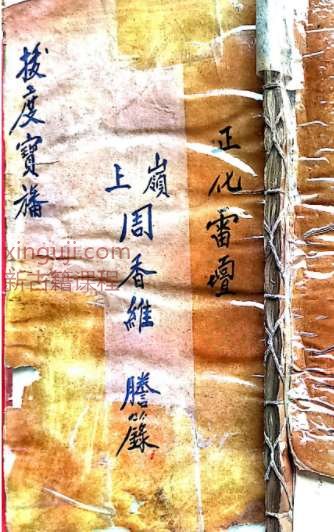 正化雷壇
嶺上周香維 謄錄
拔度寶旛
xinguji.com
新古籍课程